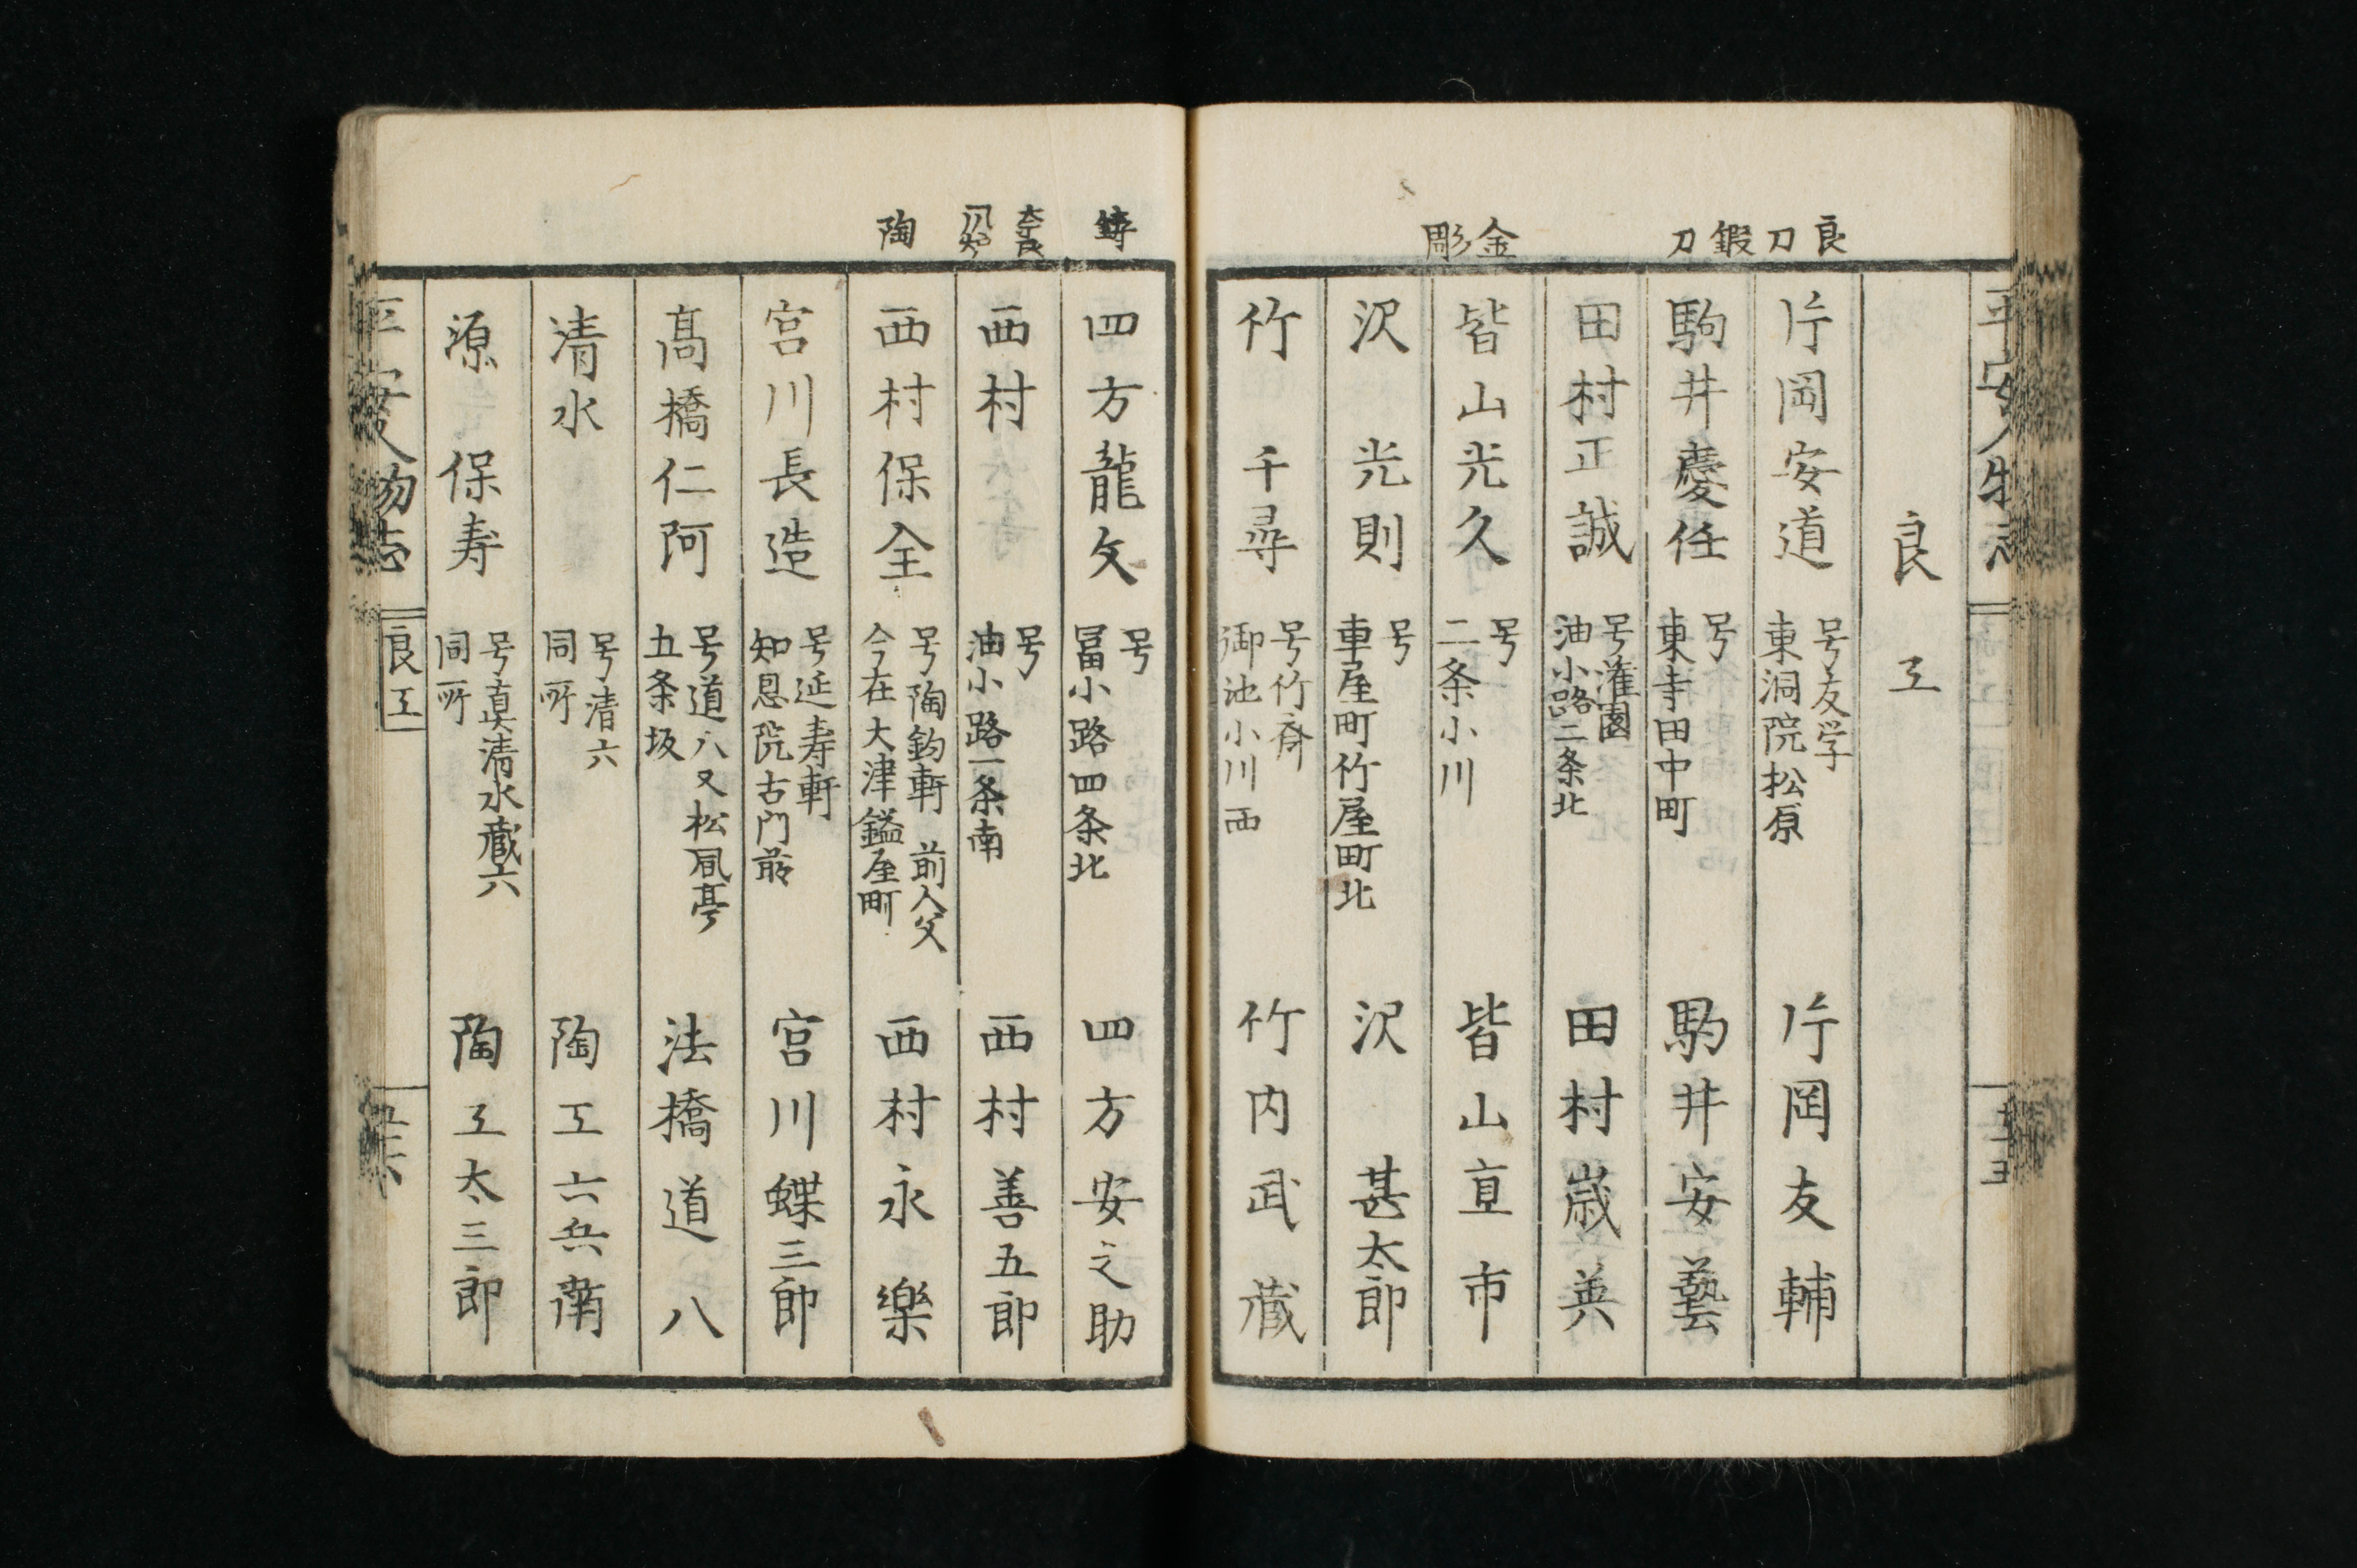 平安人物志
良工
良刀
片岡安道
号友学
東洞院松原
片岡友輔
鍛刀
駒井慶任
号
東寺田中町
駒井安藝
田村正誠
号潅園
油小路三条北
田村嵗英
金彫
皆山光久
号
二条小川
皆山亘市
沢光則
号
車屋町竹屋町北
沢甚太郎
竹千尋
号竹斎
御池小川西
竹内武蔵
鋳
四方龍文
号
冨小路四条北
四方安之助
奈良
西村
号
油小路一条南
西村善五郎
陶
西村保全
号陶鈞軒 前人父
今在大津鎰屋町
西村永樂
宮川長造
号延寿軒
知恩院古門前
宮川蝶三郎
髙橋仁阿
号道八又松風亭
五条坂
法橋道八
清水
号清六
同所
陶工六兵衛
源保寿
号真清水蔵六
同所
陶工太三郎
平安人物志
良工